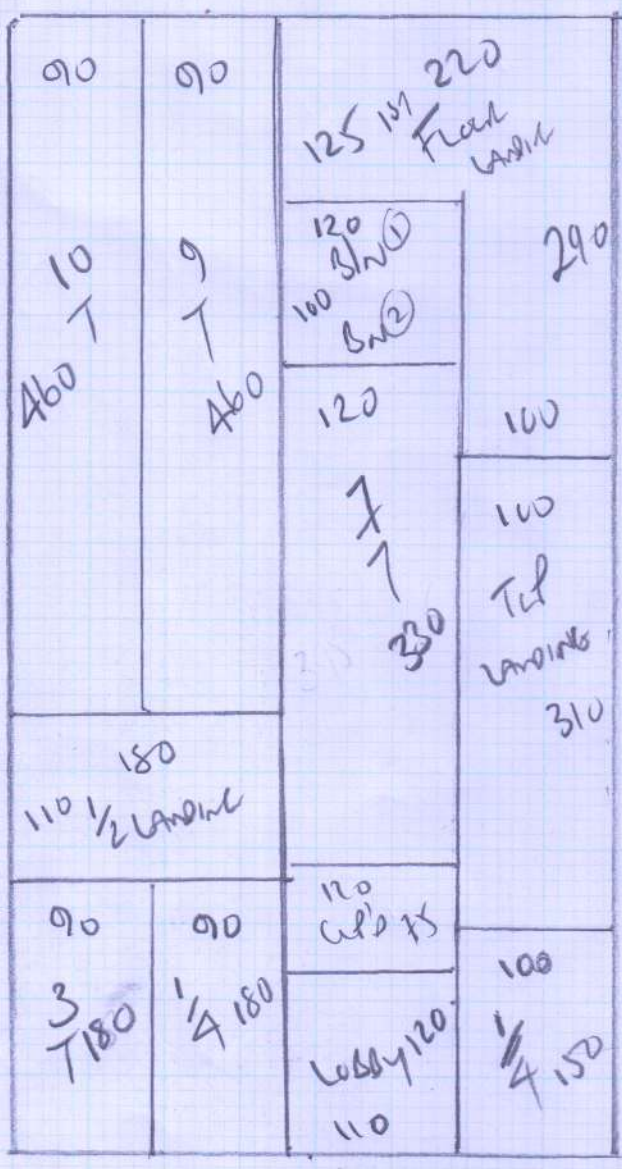 90
10
T
460
90
9
T
460
220
125 1ST FLOOR
LANDING
290
100
120
BIN ①
100
BIN ②
120
7
T
330
100
TOP
LANDING
310
180
110 1/2 LANDING
90
3
T 180
90
1/4 180
120
CUP'D 75
LOBBY 120
110
100
1/4 150